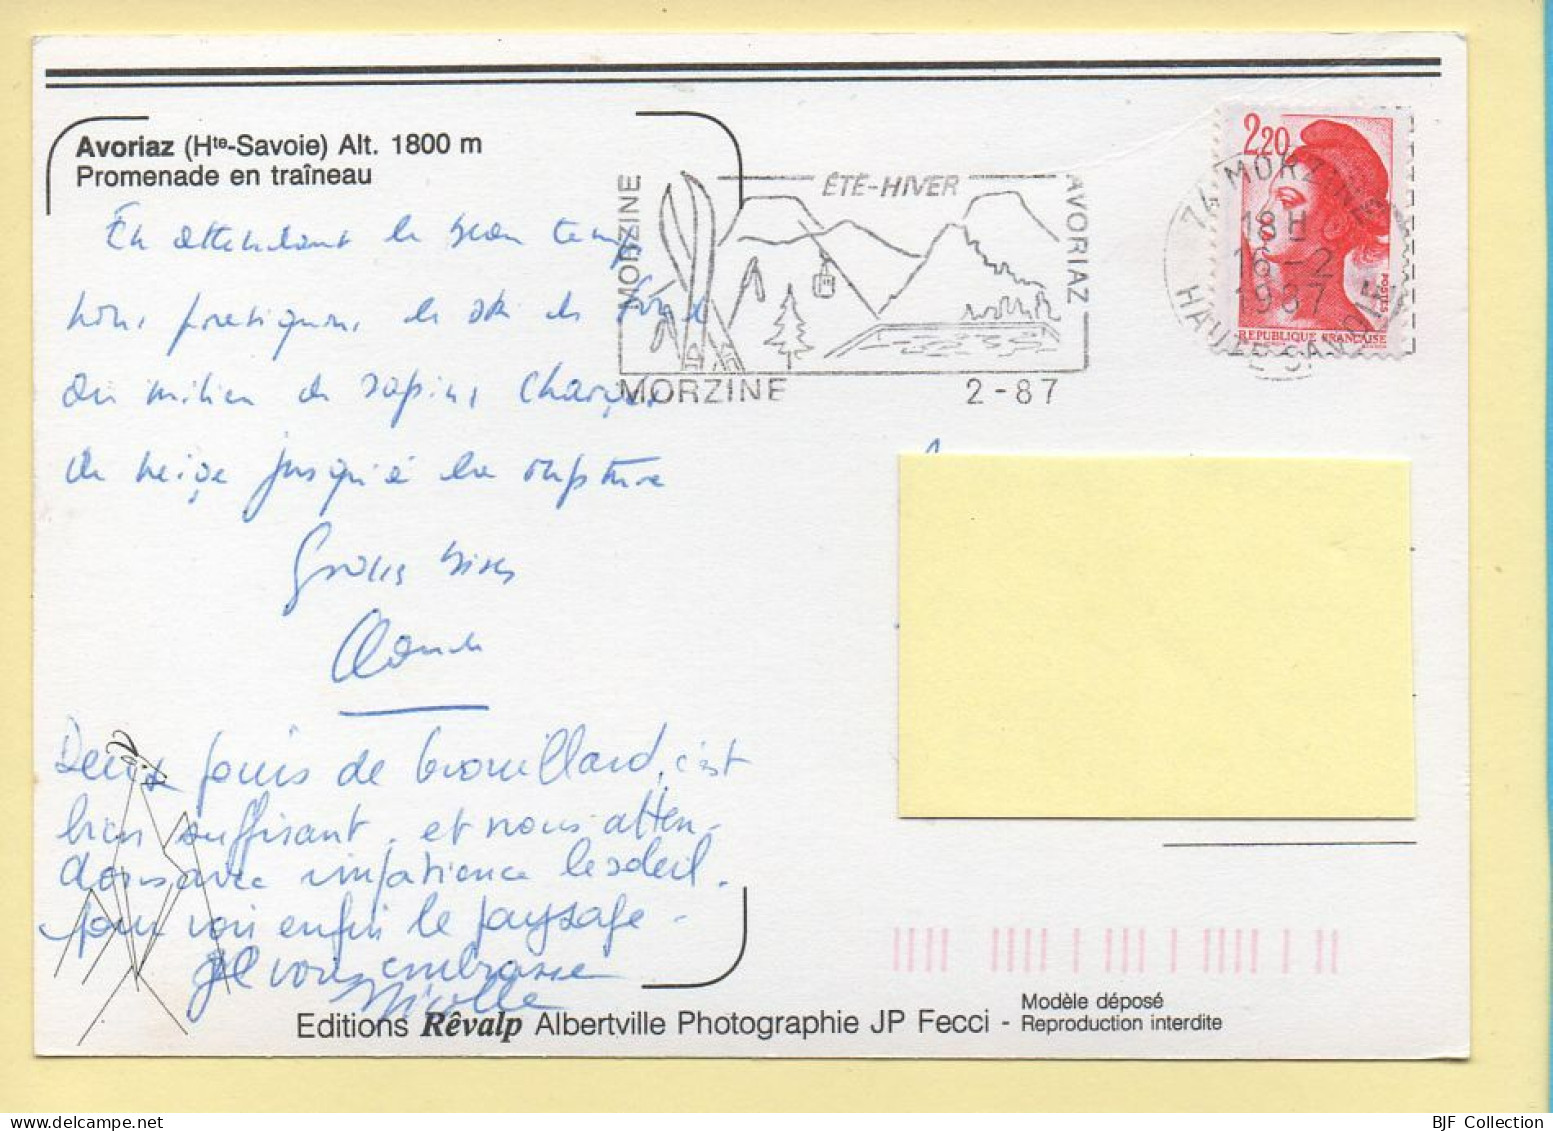 Avoriaz (Hte-Savoie) Alt. 1800 m
Promenade en traîneau
En attendant le beau temps
nous pratiquons le ski de fond
au milieu de sapins chargés
de neige jusqu'à la rupture
Grosses bises
Deux jours de brouillard, c'est
bien suffisant, et nous atten-
dons avec impatience le soleil.
pour voir enfin le paysage -
Je vous embrasse
Nicolle
MORZINE
ÉTÉ-HIVER
AVORIAZ
MORZINE 2-87
2,20
POSTES
REPUBLIQUE FRANCAISE
74 MORZINE
18H
16-2
1987
HAUTE SAVOIE
Editions Rêvalp Albertville Photographie JP Fecci - Modèle déposé
Reproduction interdite
BJF Collection